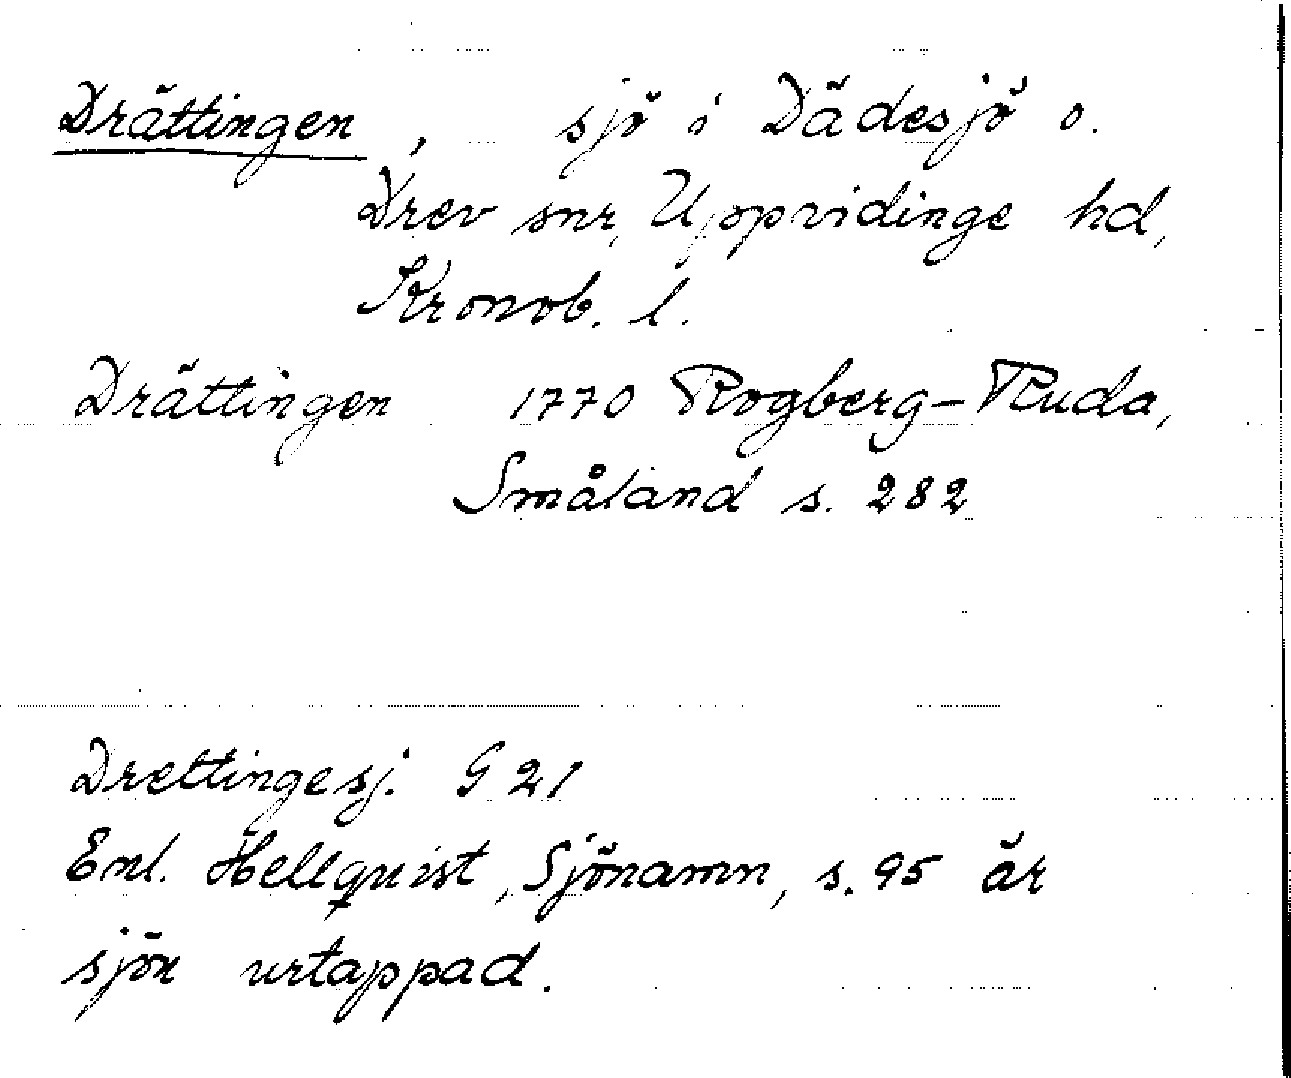 Drättingen, sjö i Dädesjö o.
Drev snr, Uppvidinge hd,
Kronob. l.
Drättingen 1770 Rogberg-Ruda,
Småland s. 282
Drettingesj. G 21
Enl. Hellquist, Sjönamn, s. 95 är
sjön urtappad.